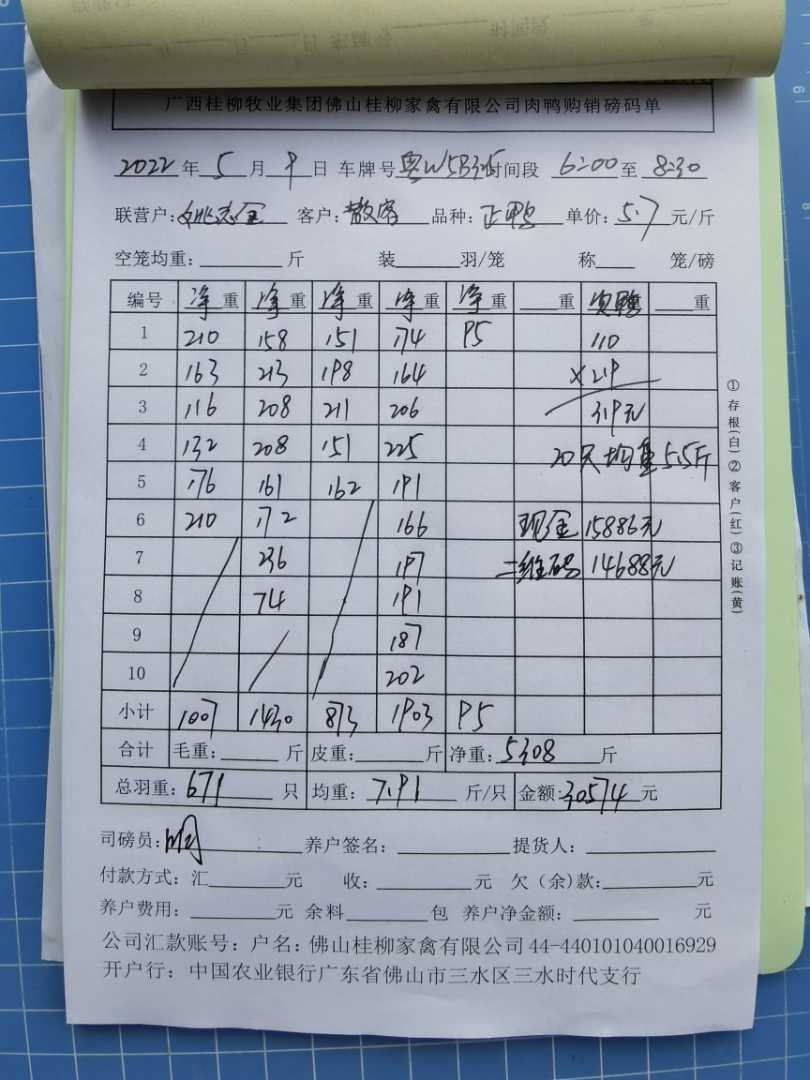 广西桂柳牧业集团佛山桂柳家禽有限公司肉鸭购销磅码单
2022年 5月 9日 车牌号 时间段 6:00至 8:30
联营户: 客户:散客 品种:正鸭 单价:5.7元/斤
空笼均重:____斤 装____羽/笼 称____笼/磅
编号 净重 净重 净重 净重 净重 ____重 鸭 ____重
1 210 158 151 174 95 110
2 163 213 198 164 ×2.9
3 116 208 211 206 319元
4 132 208 151 225 20只均重5.5斤
5 176 161 162 191
6 210 172 166 现金 15886元
7 236 197 二维码 14688元
8 74 191
9 187
10 202
小计 1007 1430 873 1903 95
合计 毛重:____斤 皮重:____斤 净重:5308斤
总羽重:671只 均重:7.91斤/只 金额:30574元
司磅员: 养户签名:____ 提货人:____
付款方式:汇____元 收:____元 欠(余)款:____元
养户费用:____元 余料____包 养户净金额:____元
公司汇款账号:户名:佛山桂柳家禽有限公司 44-440101040016929
开户行:中国农业银行广东省佛山市三水区三水时代支行
①存根(白)②客户(红)③记账(黄)